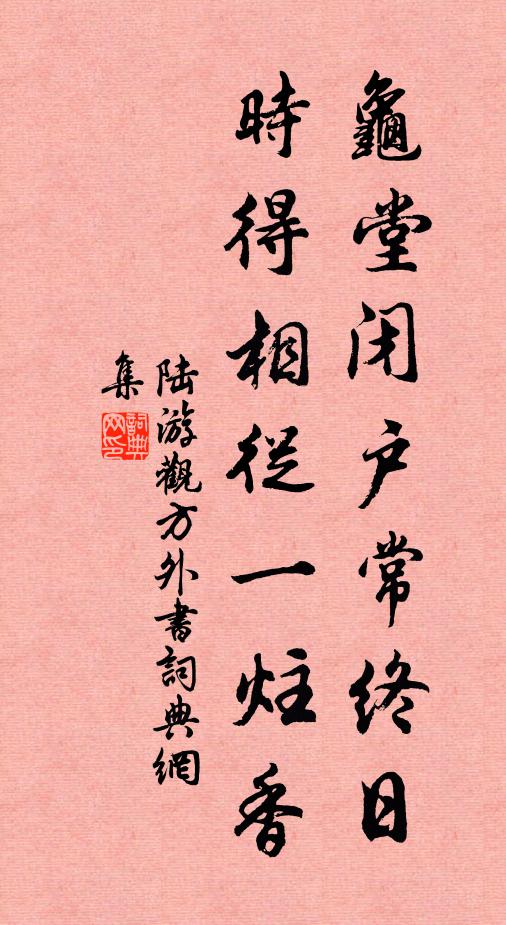 龜堂闭户常终日
時得相從一炷香
陆游觀方外書詞典網
集
詞典网印